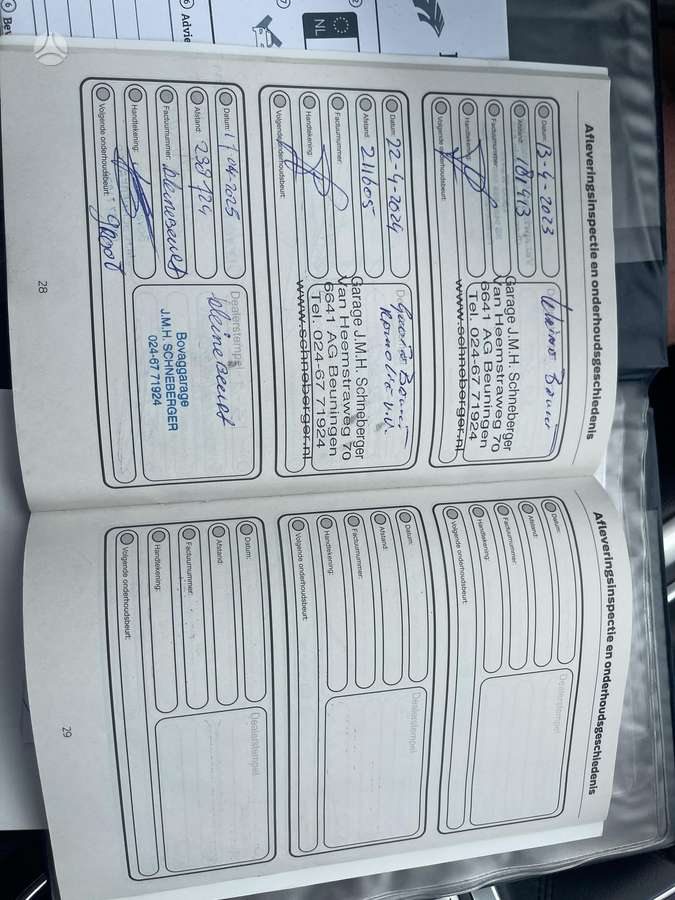 Afleveringsinspectie en onderhoudsgeschiedenis
Datum: 13-4-2023
Afstand: 181913
Factuurnummer:
Handtekening:
Volgende onderhoudsbeurt:
Beurt
Garage J.M.H. Schneberger
Van Heemstraweg 70
6641 AG Beuningen
Tel. 024-67 71924
www.schneberger.nl
Datum: 22-4-2024
Afstand: 211605
Factuurnummer:
Handtekening:
Volgende onderhoudsbeurt:
Beurt
Garage J.M.H. Schneberger
Van Heemstraweg 70
6641 AG Beuningen
Tel. 024-67 71924
www.schneberger.nl
Datum: 17 04 2025
Afstand: 239124
Factuurnummer: kleine beurt
Handtekening:
Volgende onderhoudsbeurt: groot
Dealerstempel
kleine beurt
Bovaggarage
J.M.H. SCHNEBERGER
024-67 71924
28
Afleveringsinspectie en onderhoudsgeschiedenis
Datum:
Afstand:
Factuurnummer:
Handtekening:
Volgende onderhoudsbeurt:
Dealerstempel
Datum:
Afstand:
Factuurnummer:
Handtekening:
Volgende onderhoudsbeurt:
Dealerstempel
Datum:
Afstand:
Factuurnummer:
Handtekening:
Volgende onderhoudsbeurt:
Dealerstempel
29
NL
6 Advie
6 Bev